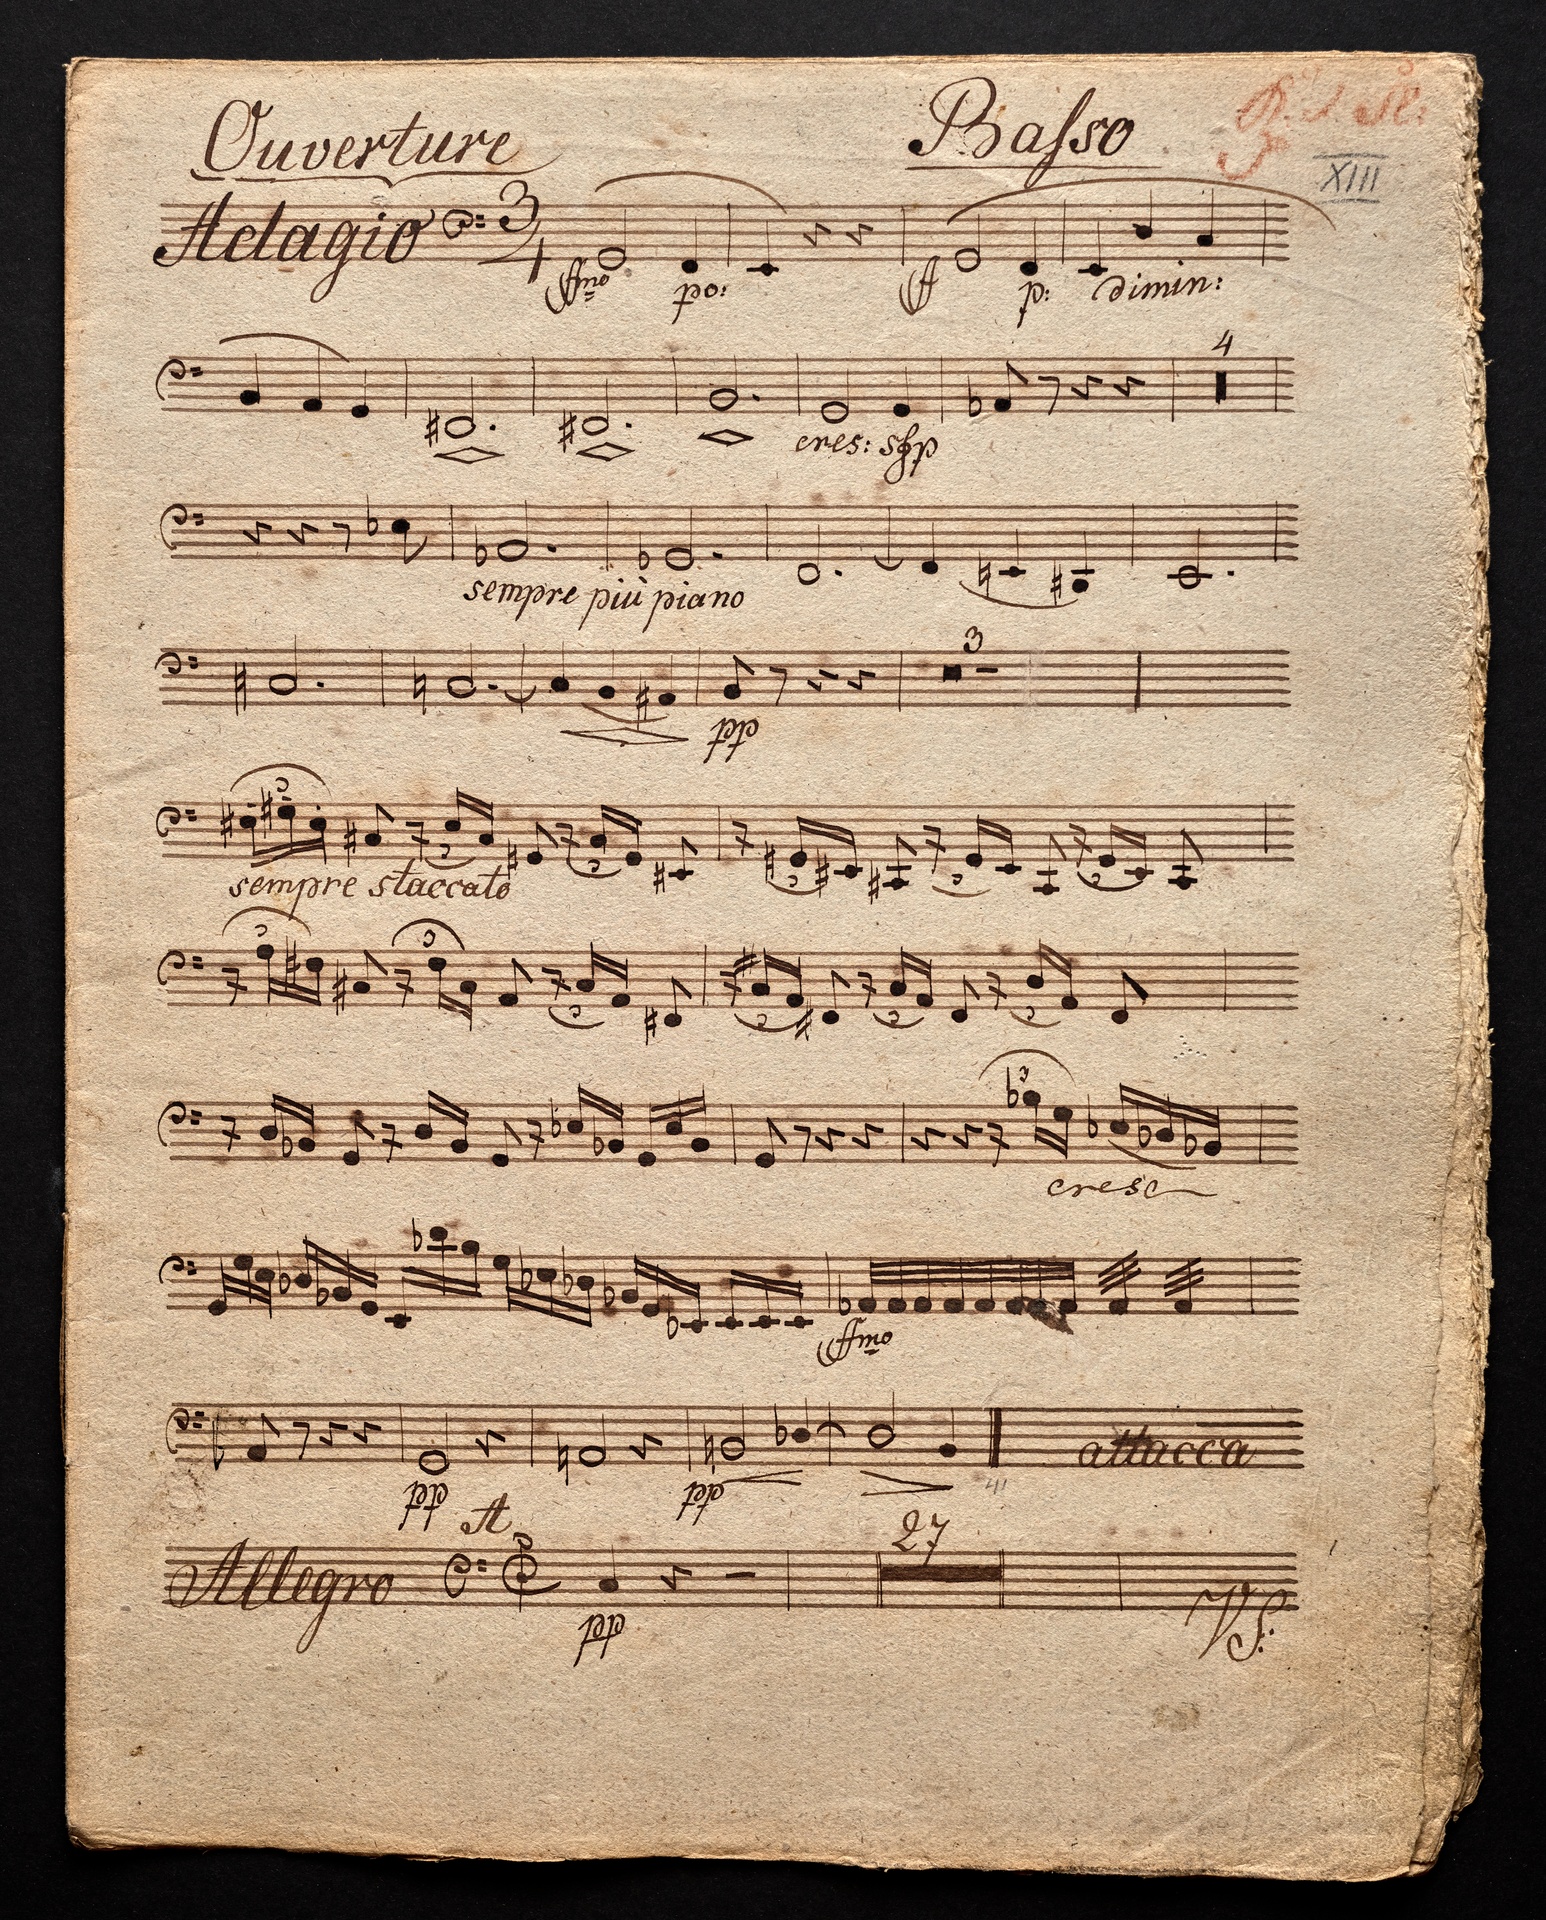 Ouverture Basso
XIII
Adagio 3/4
ffmo po: ff p: dimin:
4
cres: sfp
sempre più piano
3
ppp
sempre staccato
cresc
ffmo
attacca
pp pp
41
27
Allegro
pp
VS: